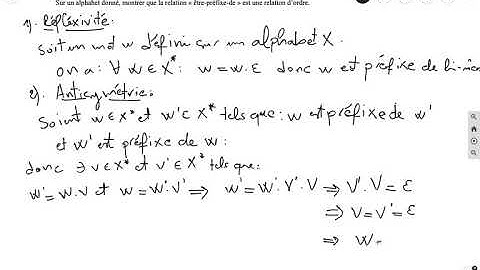 Sur un alphabet donné, montrer que la relation « être-préfixe-de » est une relation d'ordre.
1). Réfléxivité:
Soit un mot w défini sur un alphabet X.
on a: ∀ w ∈ X*: w = w.ε donc w est préfixe de lui-même
2). Antisymétrie:
Soient w ∈ X* et w' ∈ X* tels que: w est préfixe de w'
et w' est préfixe de w:
donc ∃ v ∈ X* et v' ∈ X* tels que:
w' = w.v et w = w'.v' ⟹ w' = w'.v'.v ⟹ v'.v = ε
⟹ v = v' = ε
⟹ w =